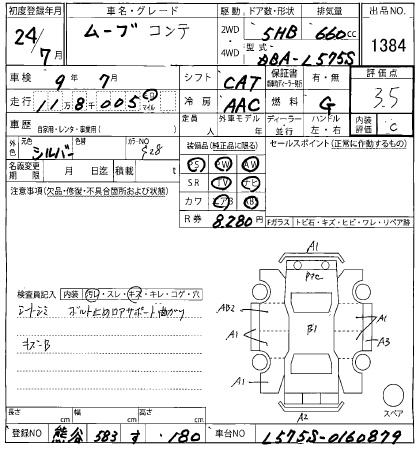 初度登録年月 車名・グレード 駆動 ドア数・形状 排気量 出品NO
24年 7月 ムーブ コンテ 2WD 4WD 5HB 660cc 1384
型式 DBA-L575S
車検 9年 7月 シフト CAT 保証書 有・無 評価点
走行 11万8千005 km マイル 冷房 AAC 燃料 G 3.5
車歴 自家用・レンタ・事業用( ) 定員 人 外車モデル 年 ディーラー 並行 ハンドル 左・右 内装評価 C
外色 元色 シルバー 色替 カラーNO S28 装備品(純正品に限る) セールスポイント(正常に作動するもの)
名義変更期限 月 日迄 積載 t PS PW AW
注意事項(欠品・修復・不具合箇所および状態) SR TV ナビ
カワ エアB
R券 8.280円 Fガラス トビ石・キズ・ヒビ・ワレ・リペア跡
A1
検査員記入 内装 汚レ・スレ・キズ・キレ・コゲ・穴 AB2 B1 A1
シートシミ ボルト止めロアサポート曲がり A1 A3
キズ B
A1 A1
A2 スペア
長さ cm 幅 cm 高さ cm
登録NO 熊谷 583 す 180 車台NO L575S-0160879